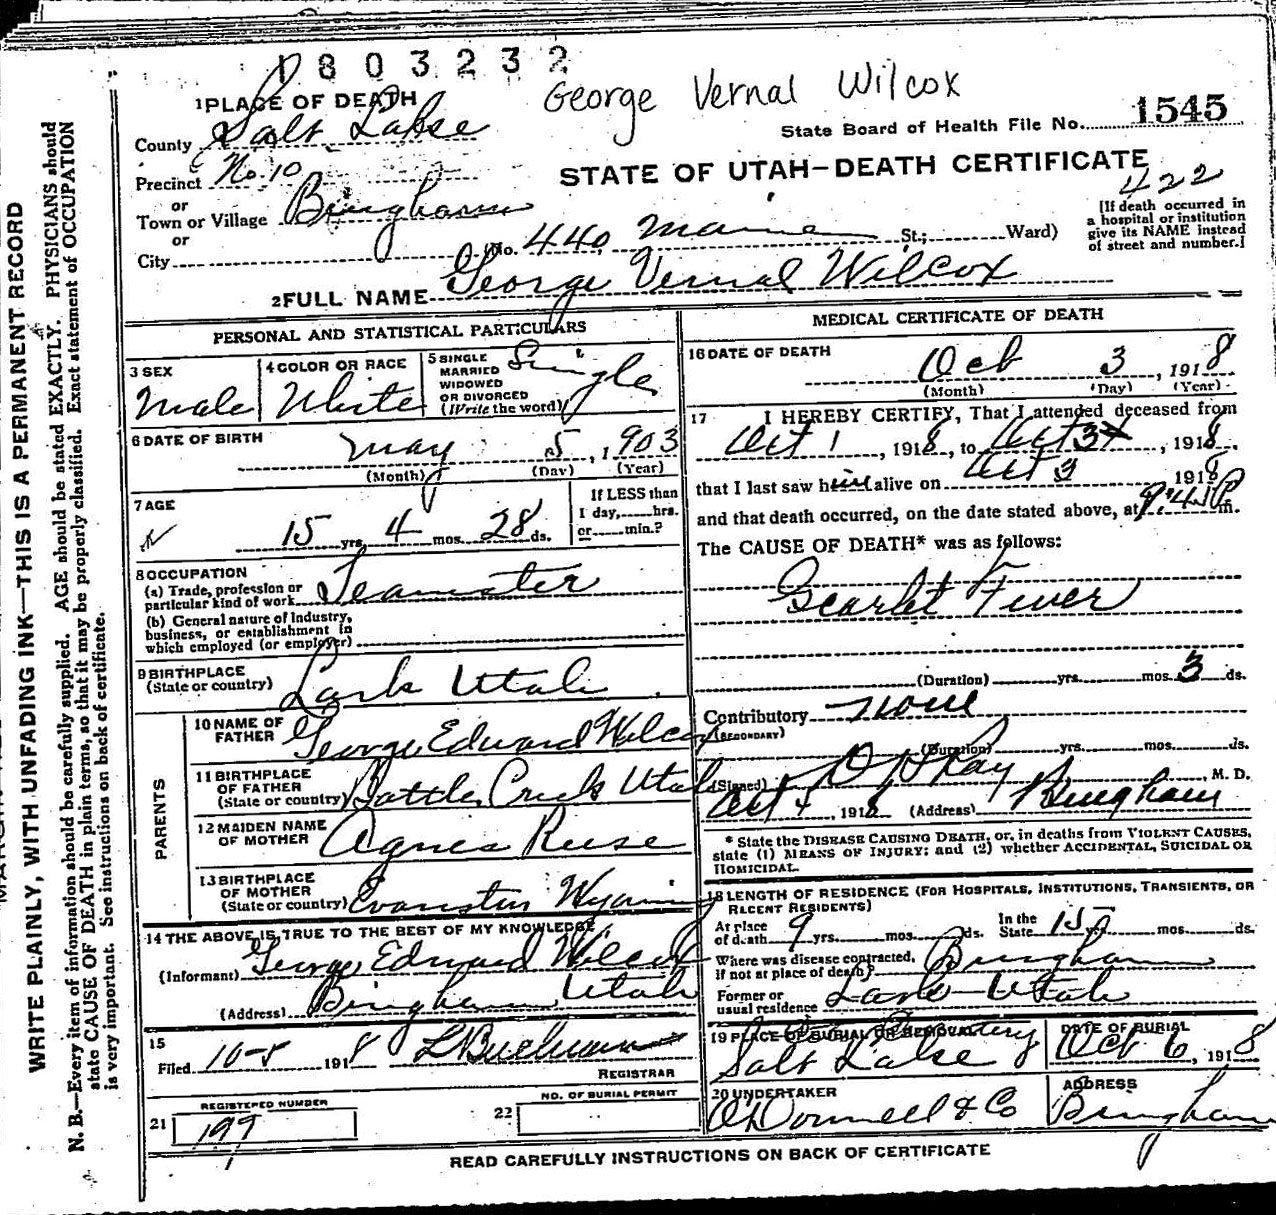 1803232
George Vernal Wilcox
1 PLACE OF DEATH
State Board of Health File No. 1545
County Salt Lake
STATE OF UTAH—DEATH CERTIFICATE
Precinct No. 10
422
or
Town or Village Bingham
[If death occurred in a hospital or institution give its NAME instead of street and number.]
or
City No. 440 Main St.; Ward)
2 FULL NAME George Vernal Wilcox
PERSONAL AND STATISTICAL PARTICULARS
3 SEX
Male
4 COLOR OR RACE
White
5 SINGLE
MARRIED
WIDOWED
OR DIVORCED
(Write the word)
Single
6 DATE OF BIRTH
May 5, 1903
(Month) (Day) (Year)
7 AGE
15 yrs. 4 mos. 28 ds.
If LESS than
1 day, hrs.
or min.?
8 OCCUPATION
(a) Trade, profession or
particular kind of work Teamster
(b) General nature of Industry,
business, or establishment in
which employed (or employer)
9 BIRTHPLACE
(State or country) Lark Utah
PARENTS
10 NAME OF
FATHER George Edward Wilcox
11 BIRTHPLACE
OF FATHER
(State or country) Battle Creek Utah
12 MAIDEN NAME
OF MOTHER Agnes Reese
13 BIRTHPLACE
OF MOTHER
(State or country) Evanston Wyoming
14 THE ABOVE IS TRUE TO THE BEST OF MY KNOWLEDGE
(Informant) George Edward Wilcox
(Address) Bingham Utah
15
Filed 10-5 1918
REGISTRAR
21 REGISTERED NUMBER
199
22 NO. OF BURIAL PERMIT
MEDICAL CERTIFICATE OF DEATH
16 DATE OF DEATH
Oct 3, 1918
(Month) (Day) (Year)
17 I HEREBY CERTIFY, That I attended deceased from
Oct 1, 1918, to Oct 3, 1918.
that I last saw him alive on Oct 3 1918
and that death occurred, on the date stated above, at m.
The CAUSE OF DEATH* was as follows:
Scarlet Fever
(Duration) yrs. mos. 3 ds.
Contributory None
(SECONDARY)
(Duration) yrs. mos. ds.
(Signed) M. D.
Oct 4, 1918 (Address) Bingham
* State the DISEASE CAUSING DEATH, or, in deaths from VIOLENT CAUSES,
state (1) MEANS OF INJURY; and (2) whether ACCIDENTAL, SUICIDAL OR
HOMICIDAL.
18 LENGTH OF RESIDENCE (FOR HOSPITALS, INSTITUTIONS, TRANSIENTS, OR
RECENT RESIDENTS)
At place
of death 9 yrs. mos. ds.
In the
State 15 yrs. mos. ds.
Where was disease contracted,
if not at place of death? Bingham
Former or
usual residence Lark Utah
19 PLACE OF BURIAL OR REMOVAL
Cemetery
Salt Lake
DATE OF BURIAL
Oct 6, 1918
20 UNDERTAKER
O'Donnell & Co
ADDRESS
Bingham
READ CAREFULLY INSTRUCTIONS ON BACK OF CERTIFICATE
WRITE PLAINLY, WITH UNFADING INK—THIS IS A PERMANENT RECORD
N. B.—Every item of information should be carefully supplied. AGE should be stated EXACTLY. PHYSICIANS should
state CAUSE OF DEATH in plain terms, so that it may be properly classified. Exact statement of OCCUPATION
is very important. See instructions on back of certificate.